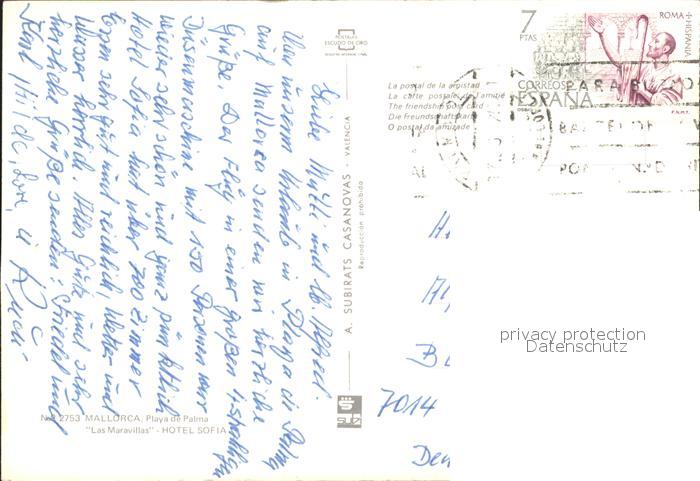 Liebe Mutti und lb. Alfred.
Von unserem Urlaub in Playa de Palma
auf Mallorca senden wir herzliche
Grüße. Der Flug in einer großen 4-strahligen
Düsenmaschine mit 150 Personen war
wieder sehr schön und ganz pünktlich
Hotel Sofia hat über 700 Zimmer
Essen sehr gut und reichlich, Wetter und
Wasser herrlich. Alles Gute und sehr
herzliche Grüße senden: Friedel und
Karl, Hilde, u
N.º 2753 MALLORCA, Playa de Palma
"Las Maravillas" - HOTEL SOFIA
POSTALES
ESCUDO DE ORO
A. SUBIRATS CASANOVAS - VALENCIA
Reproducción prohibida
La postal de la amistad
La carte postale de l'amitié
The friendship post card
Die Freundschaftskarte
O postal da amizade
7
PTAS
CORREOS
ESPAÑA
ROMA + HISPANIA
F.N.M.T.
PARA
BARCELO
PO
H
A
B
7014
Den
privacy protection
Datenschutz